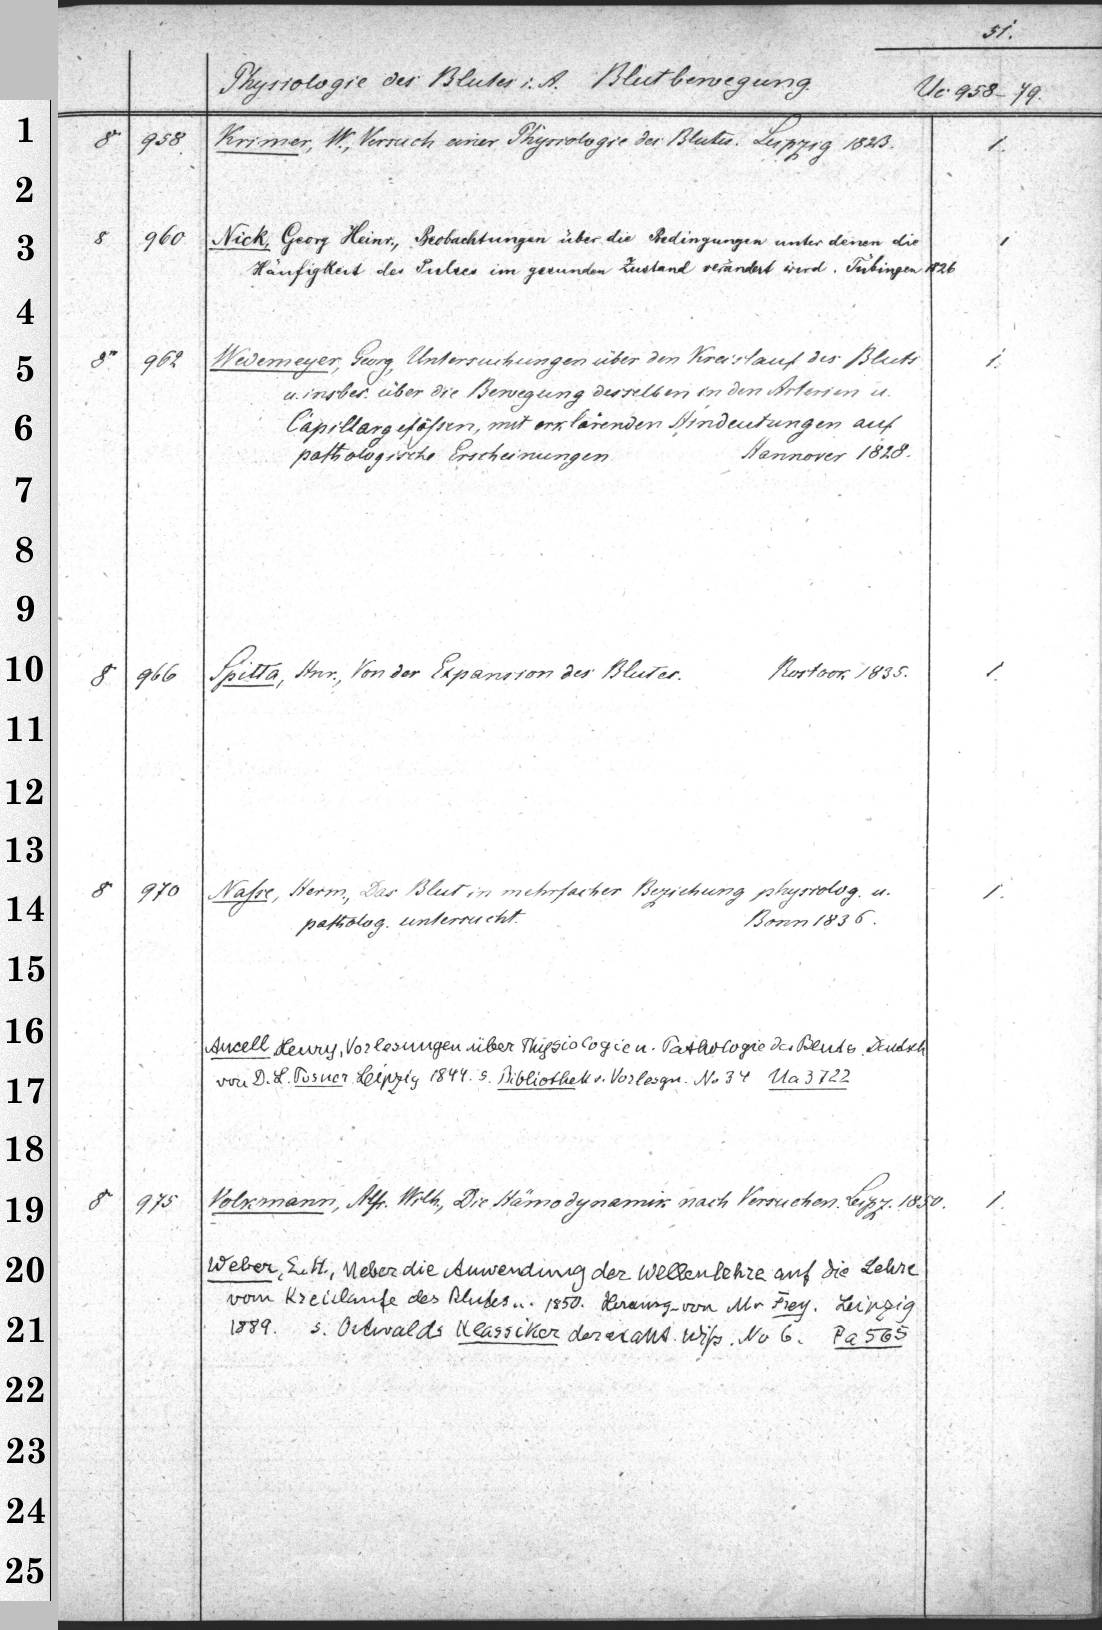 51.
Physiologie des Blutes i. A. Blutbewegung. Uc 958-79.
1 8° 958. Krimer, W., Versuch einer Physiologie des Blutes. Leipzig 1823. 1.
2
3 8 960 Nick, Georg Heinr., Beobachtungen über die Bedingungen unter denen die 1
Häufigkeit des Pulses im gesunden Zustand verändert wird. Tübingen 1826
4
5 8° 962 Wedemeyer, Georg, Untersuchungen über den Kreislauf des Bluts 1.
u. insbes. über die Bewegung desselben in den Arterien u.
6 Capillargefäßen, mit erklärenden Hindeutungen auf
pathologische Erscheinungen. Hannover 1828.
7
8
9
10 8 966 Spitta, Hnr., Von der Expansion des Blutes. Rostock 1835. 1.
11
12
13
14 8° 970 Nasse, Herm., Das Blut in mehrfacher Beziehung physiolog. u. 1.
patholog. untersucht. Bonn 1836.
15
16 Ancell Henry, Vorlesungen über Physiologie u. Pathologie des Bluts. Deutsch
17 von D. L. Posner Leipzig 1844. s. Bibliothek v. Vorlesgn. No 34 Ua 3722
18
19 8° 975 Volkmann, Alfr. Wilh., Die Hämodynamik nach Versuchen. Leipz. 1850. 1.
20 Weber, E. H., Ueber die Anwendung der Wellenlehre auf die Lehre
vom Kreislaufe des Blutes u. 1850. Herausg. von Mr Frey. Leipzig
21 1889. s. Ostwalds Klassiker der exakt. Wiss. No 6. Pa 565
22
23
24
25